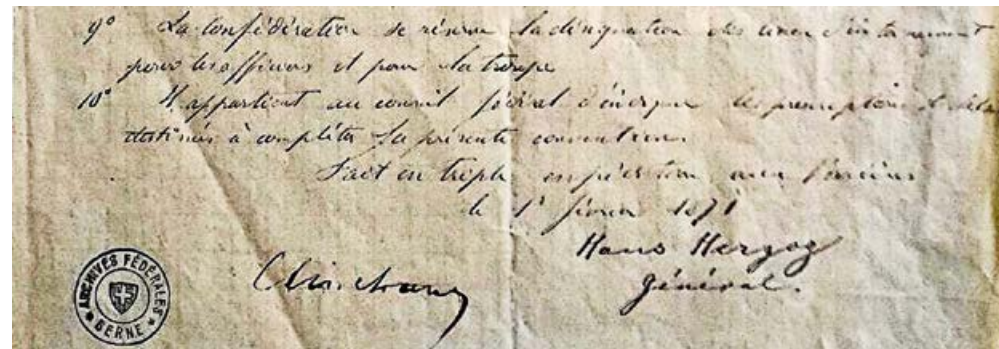 9° La confédération se réserve la désignation des lieux d'internement
pour les officiers et pour la troupe
10° Il appartient au conseil fédéral d'indiquer les prescriptions de détail
destinées à compléter la présente convention.
Fait en triple expédition aux Verrières
le 1er février 1871
Hans Herzog
Général.
Clinchant
ARCHIVES FÉDÉRALES
BERNE